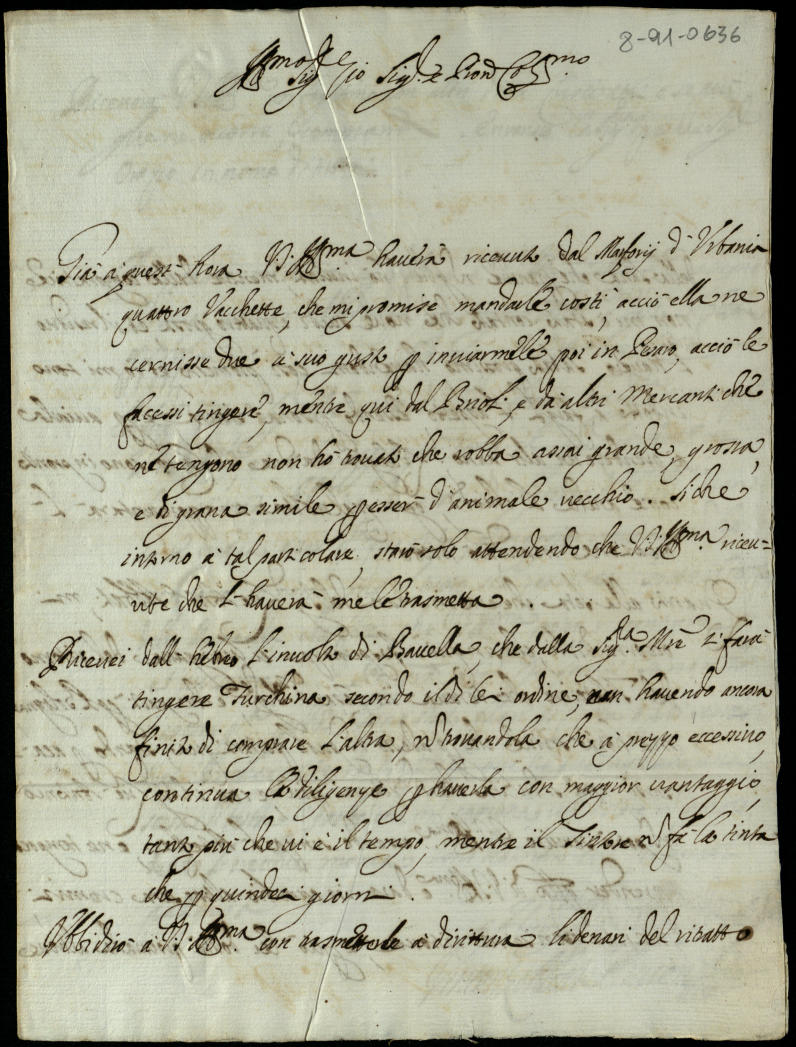 8-91-0636
Ill.mo Sig.re Sig.r e Pron Col.mo
Già à quest'hora V.S. Ill.ma haverà riceuute dal Martorij d'Vrbania
quattro Vacchette, che mi promise mandarle costì, acciò ella ne
cernisse due à suo gusto p inviarmele poi in Pesaro, acciò le
facessi tingere, mentre qui dal Brioli, e da altri Mercanti che
ne tengono non hò trouato che robba assai grande, grossa,
e di grana simile p esser d'animale vecchio. Siche
intorno à tal particolare starò solo attendendo che V.S. Ill.ma riceu=
ute che l'hauerà me le trasmetta.
Riceuei dall'hebreo l'inuolto di Bauella, che dalla Sig.ra Mre si farà
tingere Turchina secondo il di lei ordine, non hauendo ancora
finito di comprare l'altra, nò trouandola che à prezzo eccessiuo,
continua le diligenze p hauerla con maggior uantaggio,
tanto più che ui è il tempo, mentre il Tintore nò fà la tinta
che p quindeci giorni.
Vbbidirò à V.S. Ill.ma con trasmetterle à dirittura li denari del ritratto